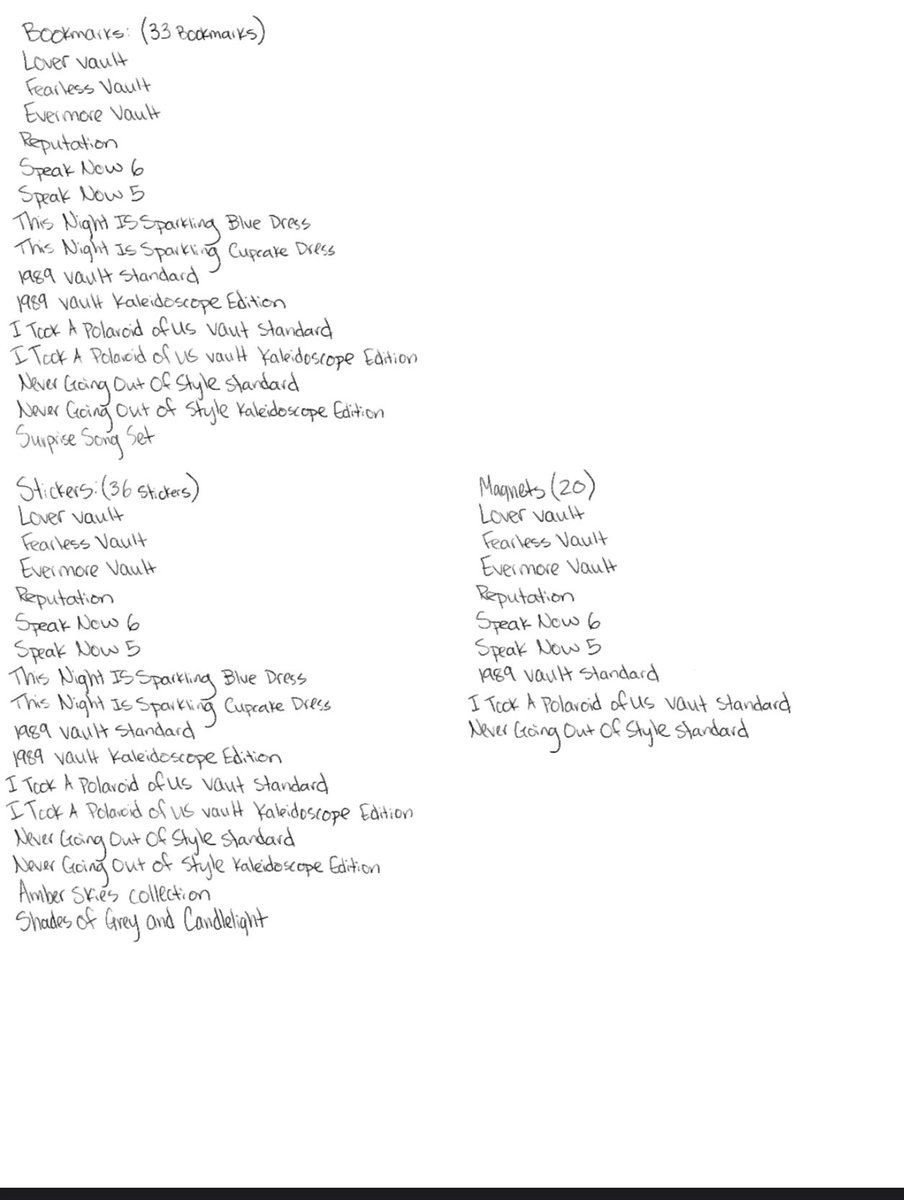 Bookmarks: (33 Bookmarks)
Lover vault
Fearless Vault
Evermore Vault
Reputation
Speak Now 6
Speak Now 5
This Night Is Sparkling Blue Dress
This Night Is Sparkling Cupcake Dress
1989 vault Standard
1989 vault Kaleidoscope Edition
I Took A Polaroid of Us vaut Standard
I Took A Polaroid of US vault Kaleidoscope Edition
Never Going Out Of Style Standard
Never Going Out of Style Kaleidoscope Edition
Surprise Song Set
Stickers: (36 Stickers)
Lover vault
Fearless Vault
Evermore Vault
Reputation
Speak Now 6
Speak Now 5
This Night Is Sparkling Blue Dress
This Night Is Sparkling Cupcake Dress
1989 vault Standard
1989 vault Kaleidoscope Edition
I Took A Polaroid of Us vaut Standard
I Took A Polaroid of US vault Kaleidoscope Edition
Never Going Out Of Style Standard
Never Going Out of Style Kaleidoscope Edition
Amber Skies collection
Shades of Grey and Candlelight
Magnets (20)
Lover vault
Fearless Vault
Evermore Vault
Reputation
Speak Now 6
Speak Now 5
1989 vault Standard
I Took A Polaroid of Us vaut Standard
Never Going Out Of Style Standard